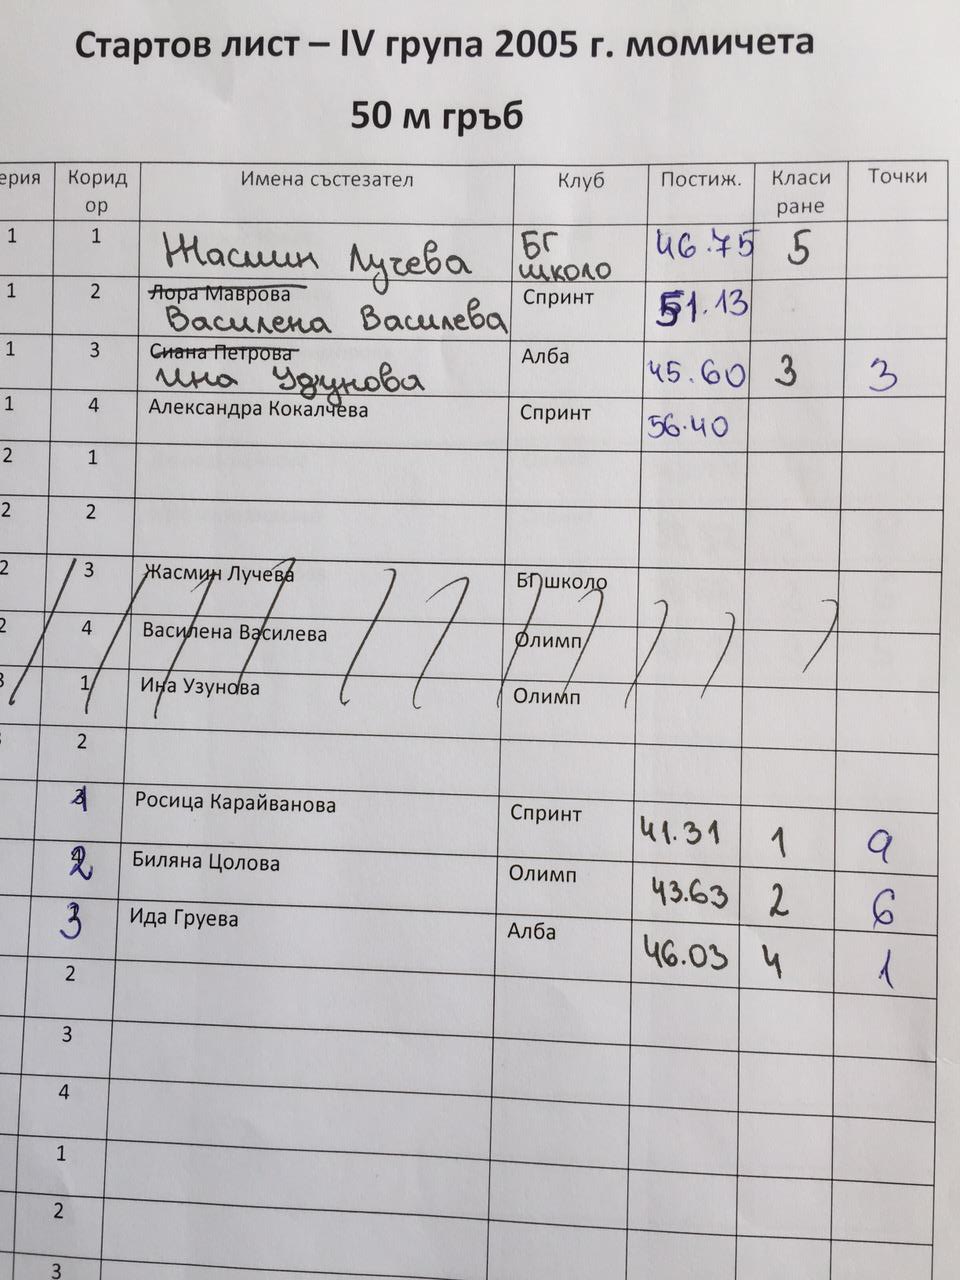 Стартов лист – IV група 2005 г. момичета
50 м гръб
ерия Корид ор Имена състезател Клуб Постиж. Класи ране Точки
1 1 Жасмин Лучева БГ школо 46.75 5
1 2 Лора Маврова Спринт 51.13
Василена Василева
1 3 Сиана Петрова Алба 45.60 3 3
Ина Узунова
1 4 Александра Кокалчева Спринт 56.40
2 1
2 2
2 3 Жасмин Лучева БГ школо
2 4 Василена Василева Олимп
3 1 Ина Узунова Олимп
2
1 Росица Карайванова Спринт 41.31 1 9
2 Биляна Цолова Олимп 43.63 2 6
3 Ида Груева Алба 46.03 4 1
2
3
4
1
2
3